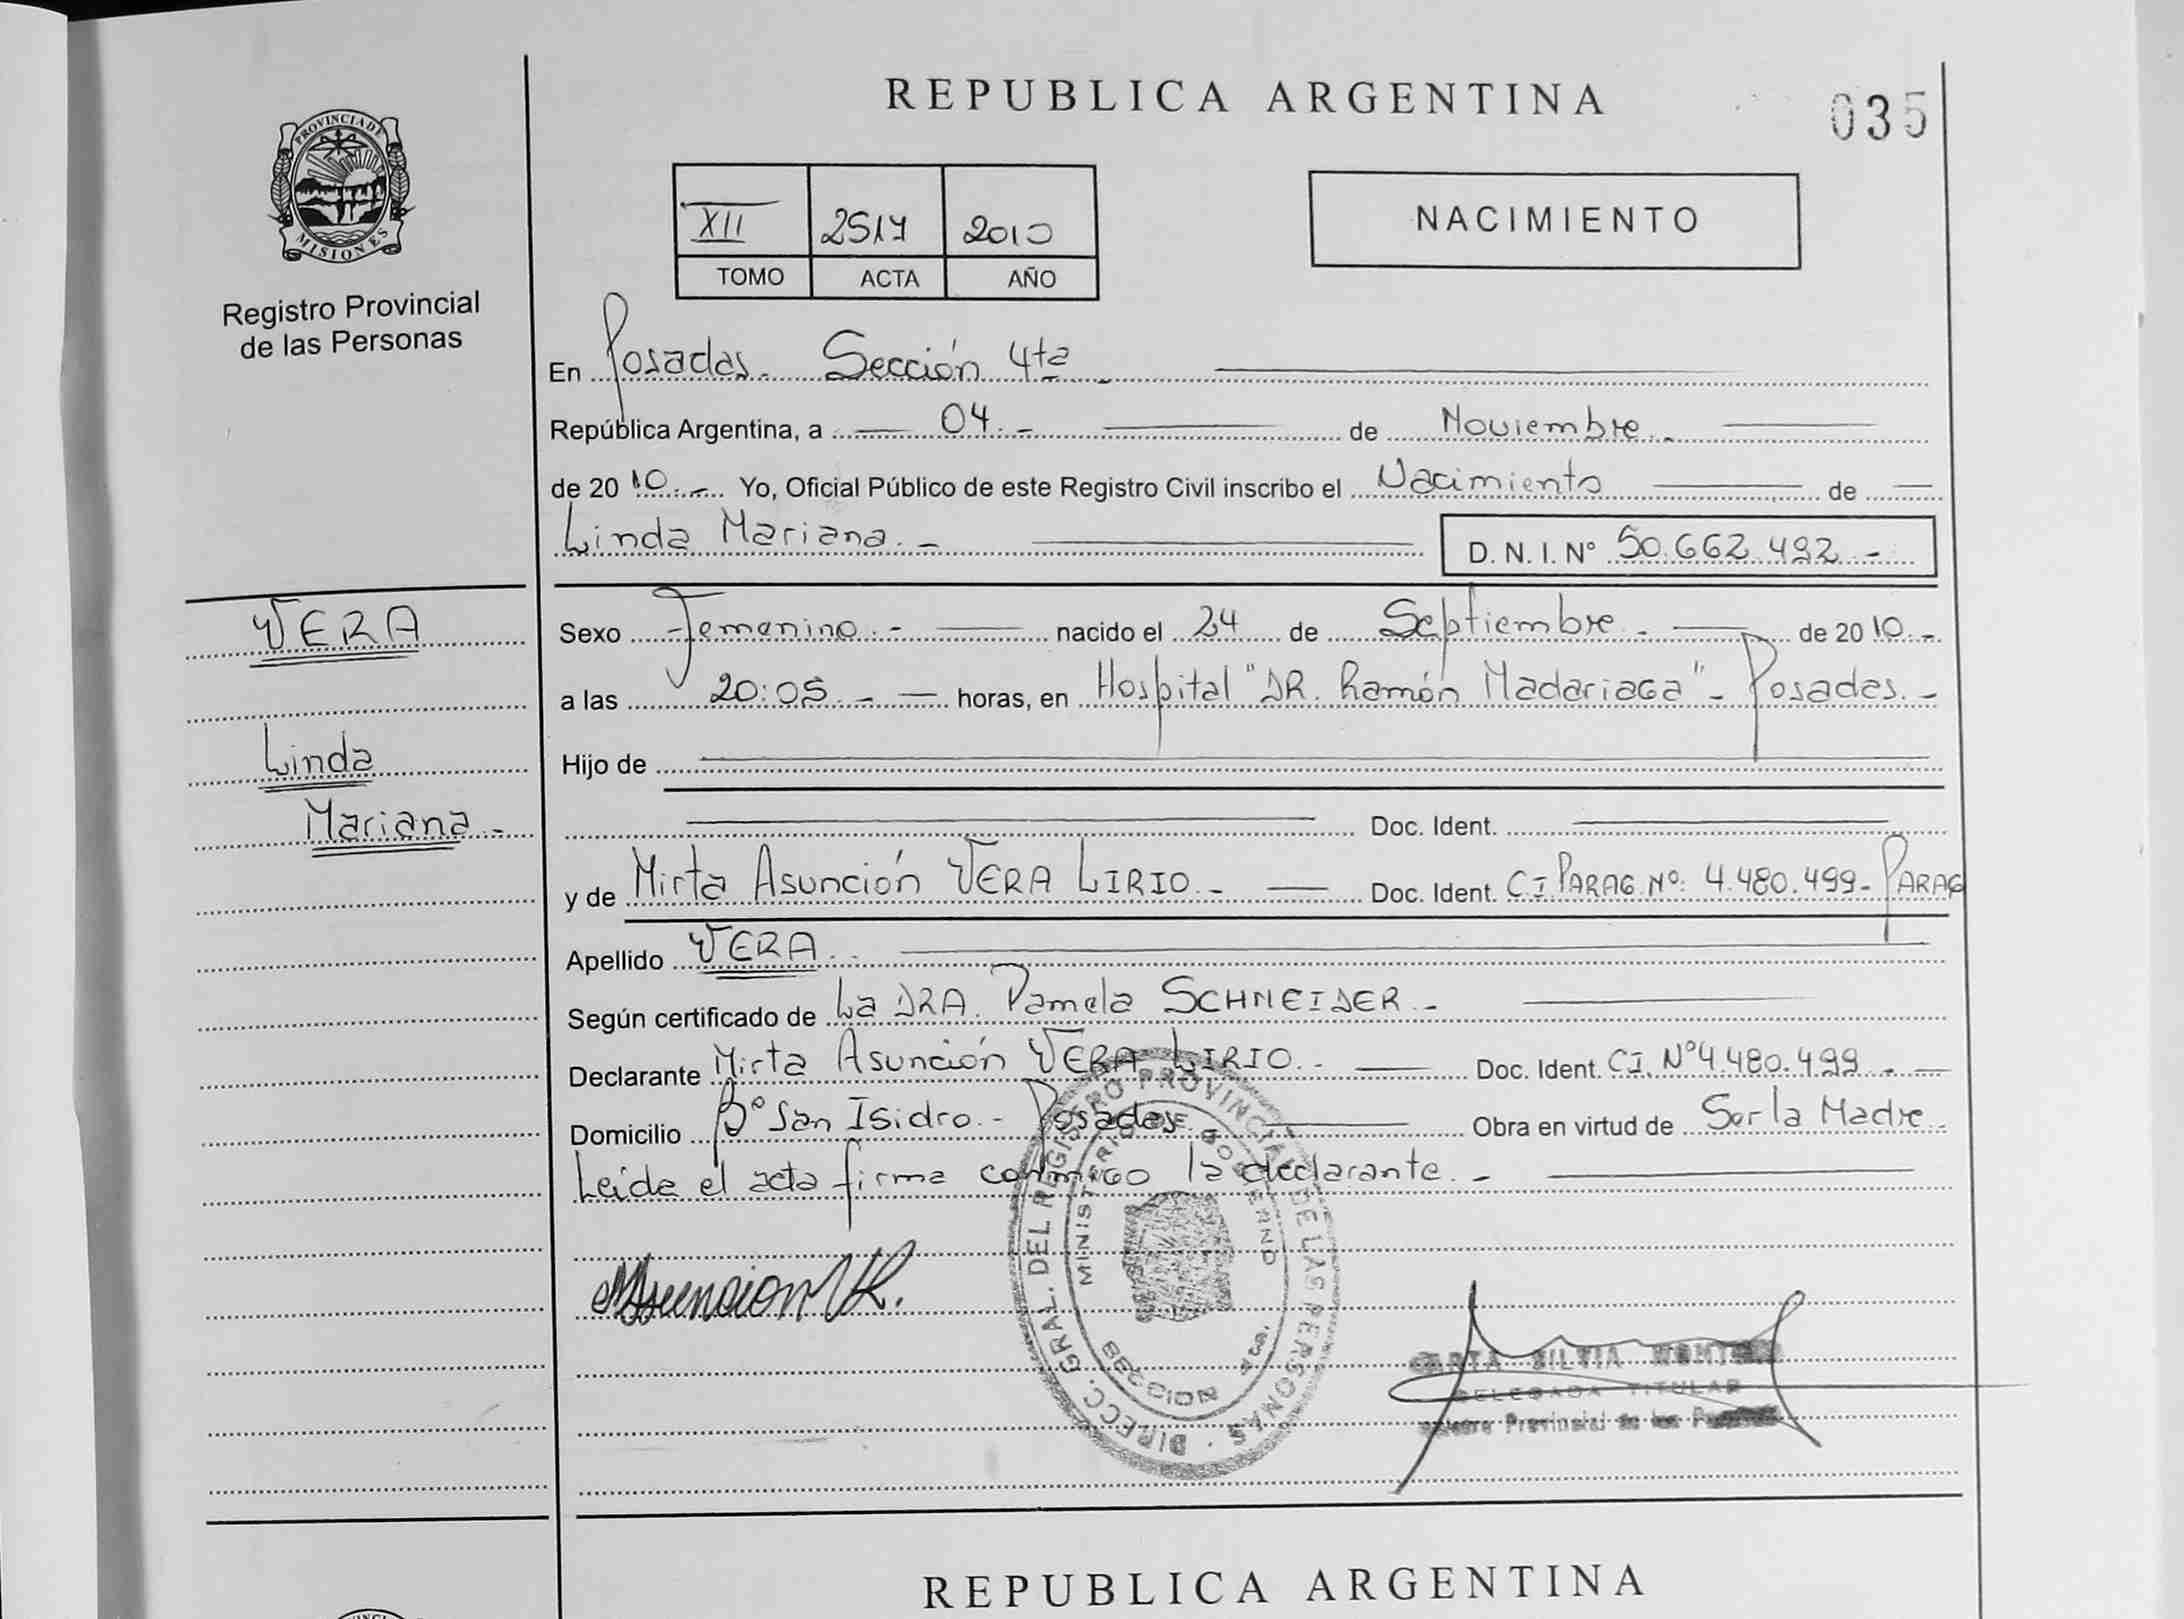 REPUBLICA ARGENTINA
035
PROVINCIA DE
MISIONES
Registro Provincial
de las Personas
XII 2517 2010
TOMO ACTA AÑO
NACIMIENTO
En Posadas. Sección 4ta
República Argentina, a 04. de Noviembre.
de 20 10. Yo, Oficial Público de este Registro Civil inscribo el Nacimiento de
Linda Mariana. D. N. I. N° 50.662.492
VERA
Linda
Mariana
Sexo Femenino. nacido el 24 de Septiembre. de 20 10.
a las 20:05. horas, en Hospital "DR. Ramón Madariaga" - Posadas.
Hijo de
Doc. Ident.
y de Mirta Asunción VERA LIRIO. Doc. Ident. C.I PARAG. Nº: 4.480.499 - PARAG
Apellido VERA.
Según certificado de La DRA. Pamela SCHNEIDER.
Declarante Mirta Asunción VERA LIRIO. Doc. Ident. CI. Nº 4.480.499
Domicilio Bº San Isidro. - Posadas. Obra en virtud de Ser la Madre
Leida el acta firma conmigo la declarante.
DIRECC. GRAL. DEL REGISTRO PROVINCIAL DE LAS PERSONAS
MINISTERIO DE GOBIERNO
DELEGADA TITULAR
Provincial de las
REPUBLICA ARGENTINA